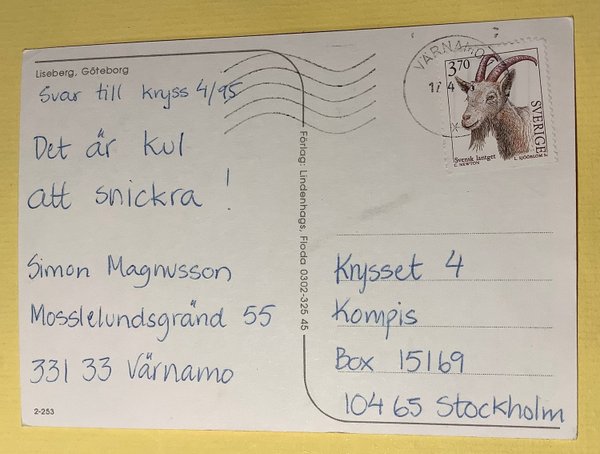 Liseberg, Göteborg
Svar till kryss 4/95
Det är kul
att snickra!
Simon Magnusson
Mosslelundsgränd 55
331 33 Värnamo
2-253
Förlag: Lindenhags, Floda 0302-325 45
VÄRNAMO
3.70
SVERIGE
Svensk lantget
Krysset 4
Kompis
Box 15169
104 65 Stockholm